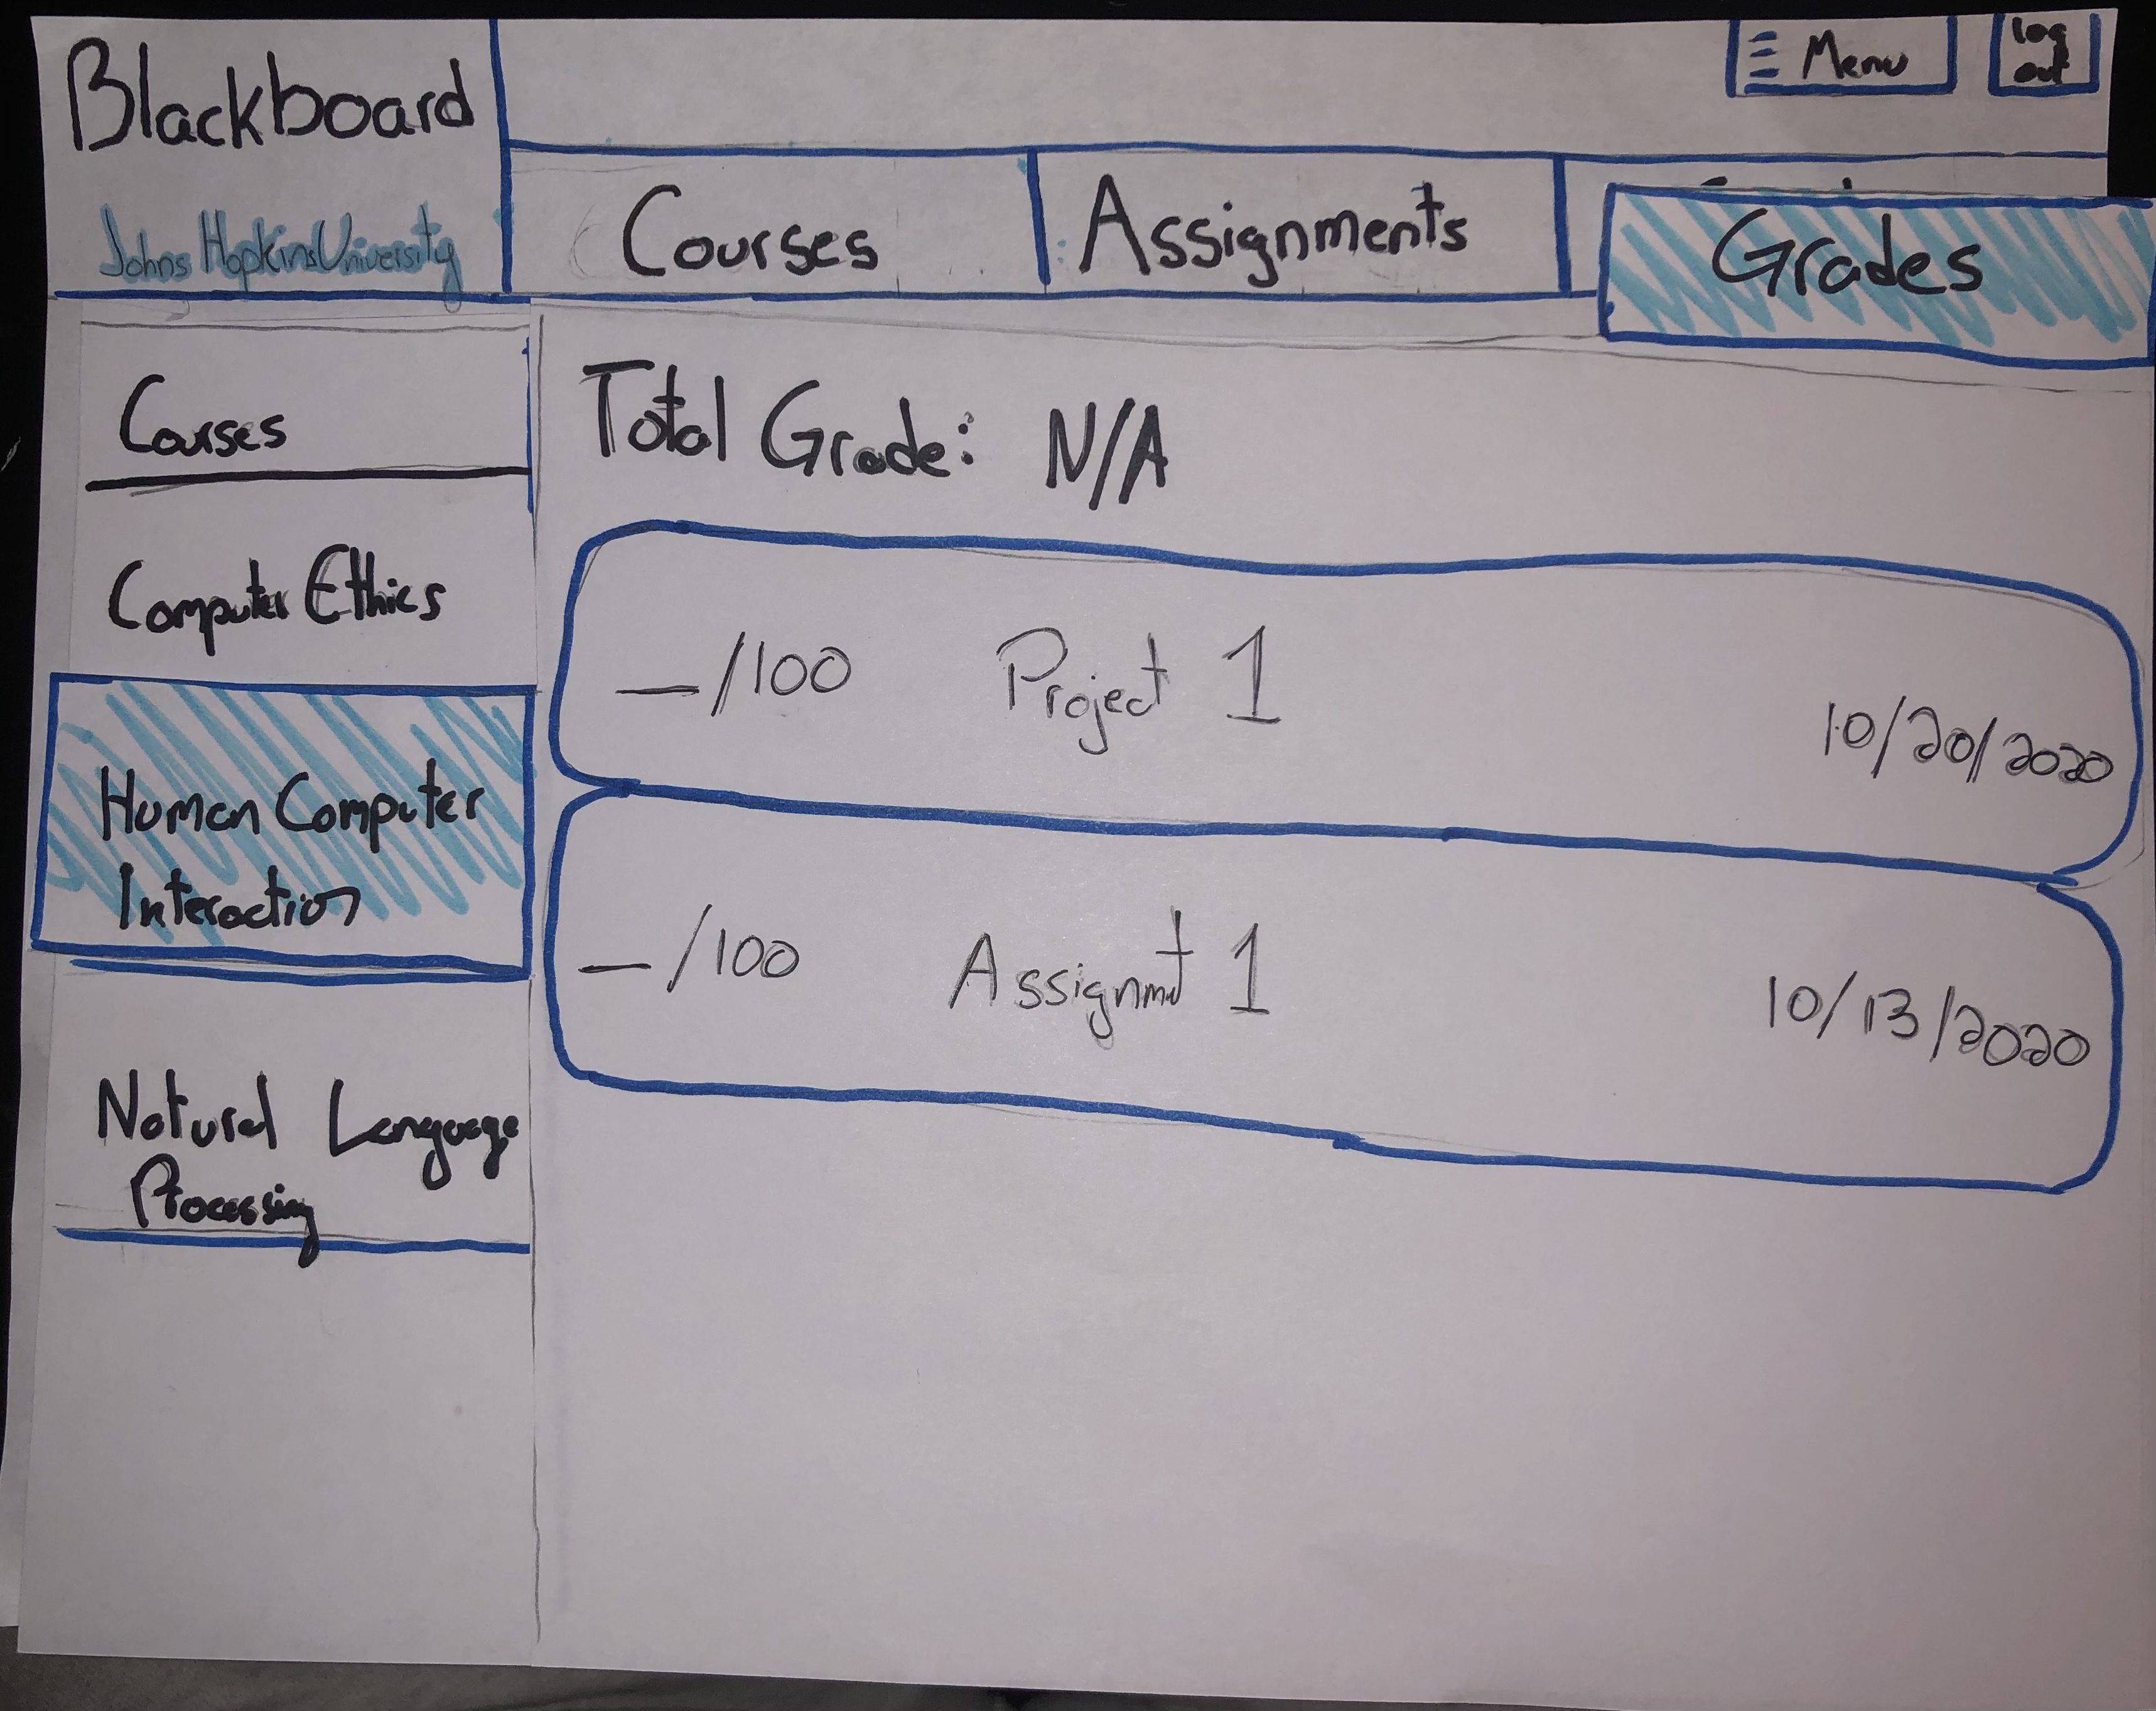 Blackboard
Johns Hopkins University
Menu
log
out
Courses
Assignments
Grades
Courses
Computer Ethics
Human Computer
Interaction
Natural Language
Processing
Total Grade: N/A
—/100 Project 1 10/20/2020
—/100 Assignmt 1 10/13/2020